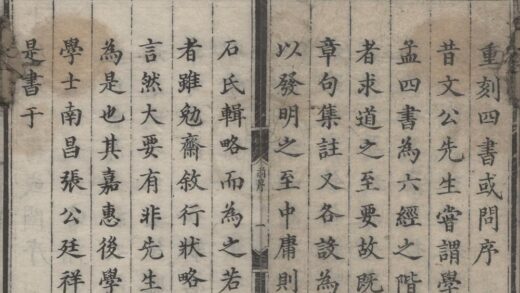 重刻四書或問序
昔文公先生嘗謂學
孟四書為六經之階
者求道之至要故既
章句集註又各設為
以發明之至中庸則
石氏輯略而為之若
者雖勉齋敘行狀略
言然大要有非先生
為是也其嘉惠後學
學士南昌張公廷祥
是書于